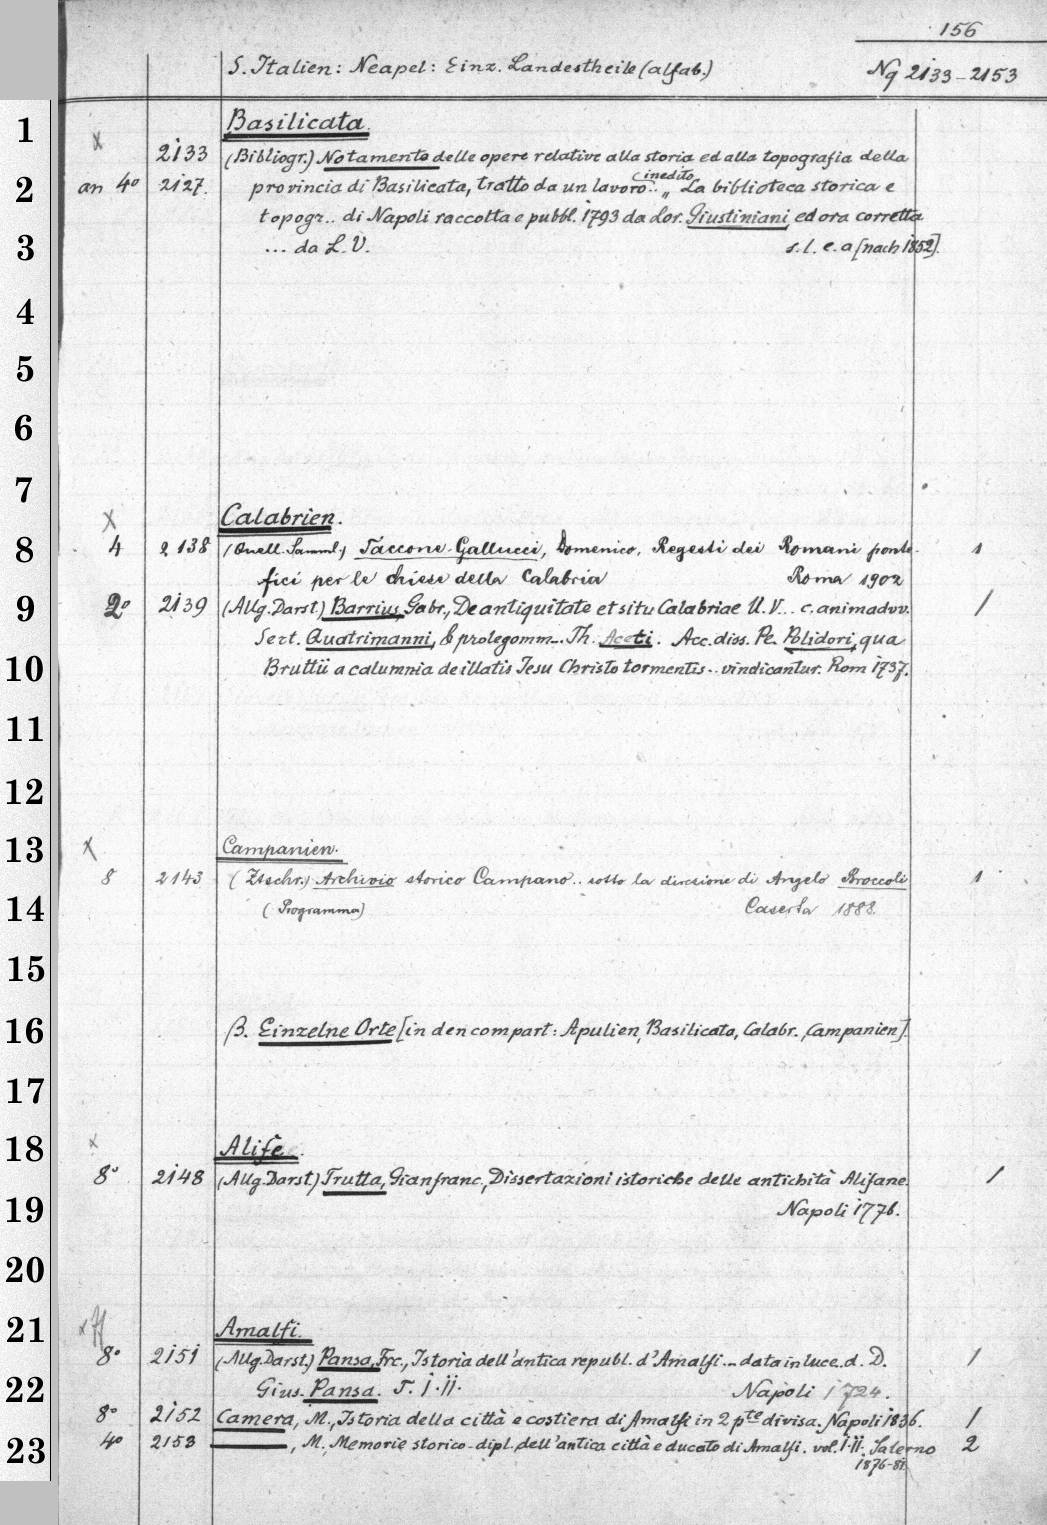 156
S. Italien: Neapel: Einz. Landestheile (alfab.)
Nq 2133-2153
1
Basilicata.
x
2133 (Bibliogr.) Notamento delle opere relative alla storia ed alla topografia della
2
an 4° 2127. provincia di Basilicata, tratto da un lavoro inedito.. „La biblioteca storica e
topogr.. di Napoli raccolta e pubbl. 1793 da Lor. Giustiniani, ed ora corretta
3
... da L. V. s. l. e. a [nach 1852].
4
5
6
7
x
Calabrien.
8
4 2138 (Quell. Samml.) Taccone-Gallucci, Domenico, Regesti dei Romani ponte- 1
fici per le chiese della Calabria Roma 1902
9
2° 2139 (Allg. Darst.) Barrius, Gabr., De antiquitate et situ Calabriae ll. V... c. animadvv. 1
Sert. Quatrimanni, & prolegomm... Th. Aceti. Acc. diss. Pe. Polidori, qua
10
Bruttii a calumnia de illatis Jesu Christo tormentis.. vindicantur. Rom 1737.
11
12
13
x
Campanien.
8 2143 (Ztschr.) Archivio storico Campano.. sotto la direzione di Angelo Broccoli 1
14
(Programma) Caserta 1888.
15
16
β. Einzelne Orte [in den compart: Apulien, Basilicata, Calabr., Campanien].
17
18
x
Alife.
8° 2148 (Allg. Darst.) Trutta, Gianfranc., Dissertazioni istoriche delle antichità Alifane. 1
19
Napoli 1776.
20
21
x
Amalfi.
8° 2151 (Allg. Darst.) Pansa, Frc., Istoria dell'antica republ. d'Amalfi... data in luce. d. D. 1
22
Gius. Pansa. T. I. II. Napoli 1724.
8° 2152 Camera, M., Istoria della città e costiera di Amalfi in 2 pte divisa. Napoli 1836. 1
23
4° 2153 ———, M., Memorie storico-dipl. dell'antica città e ducato di Amalfi. vol. I. II. Salerno 2
1876-81.